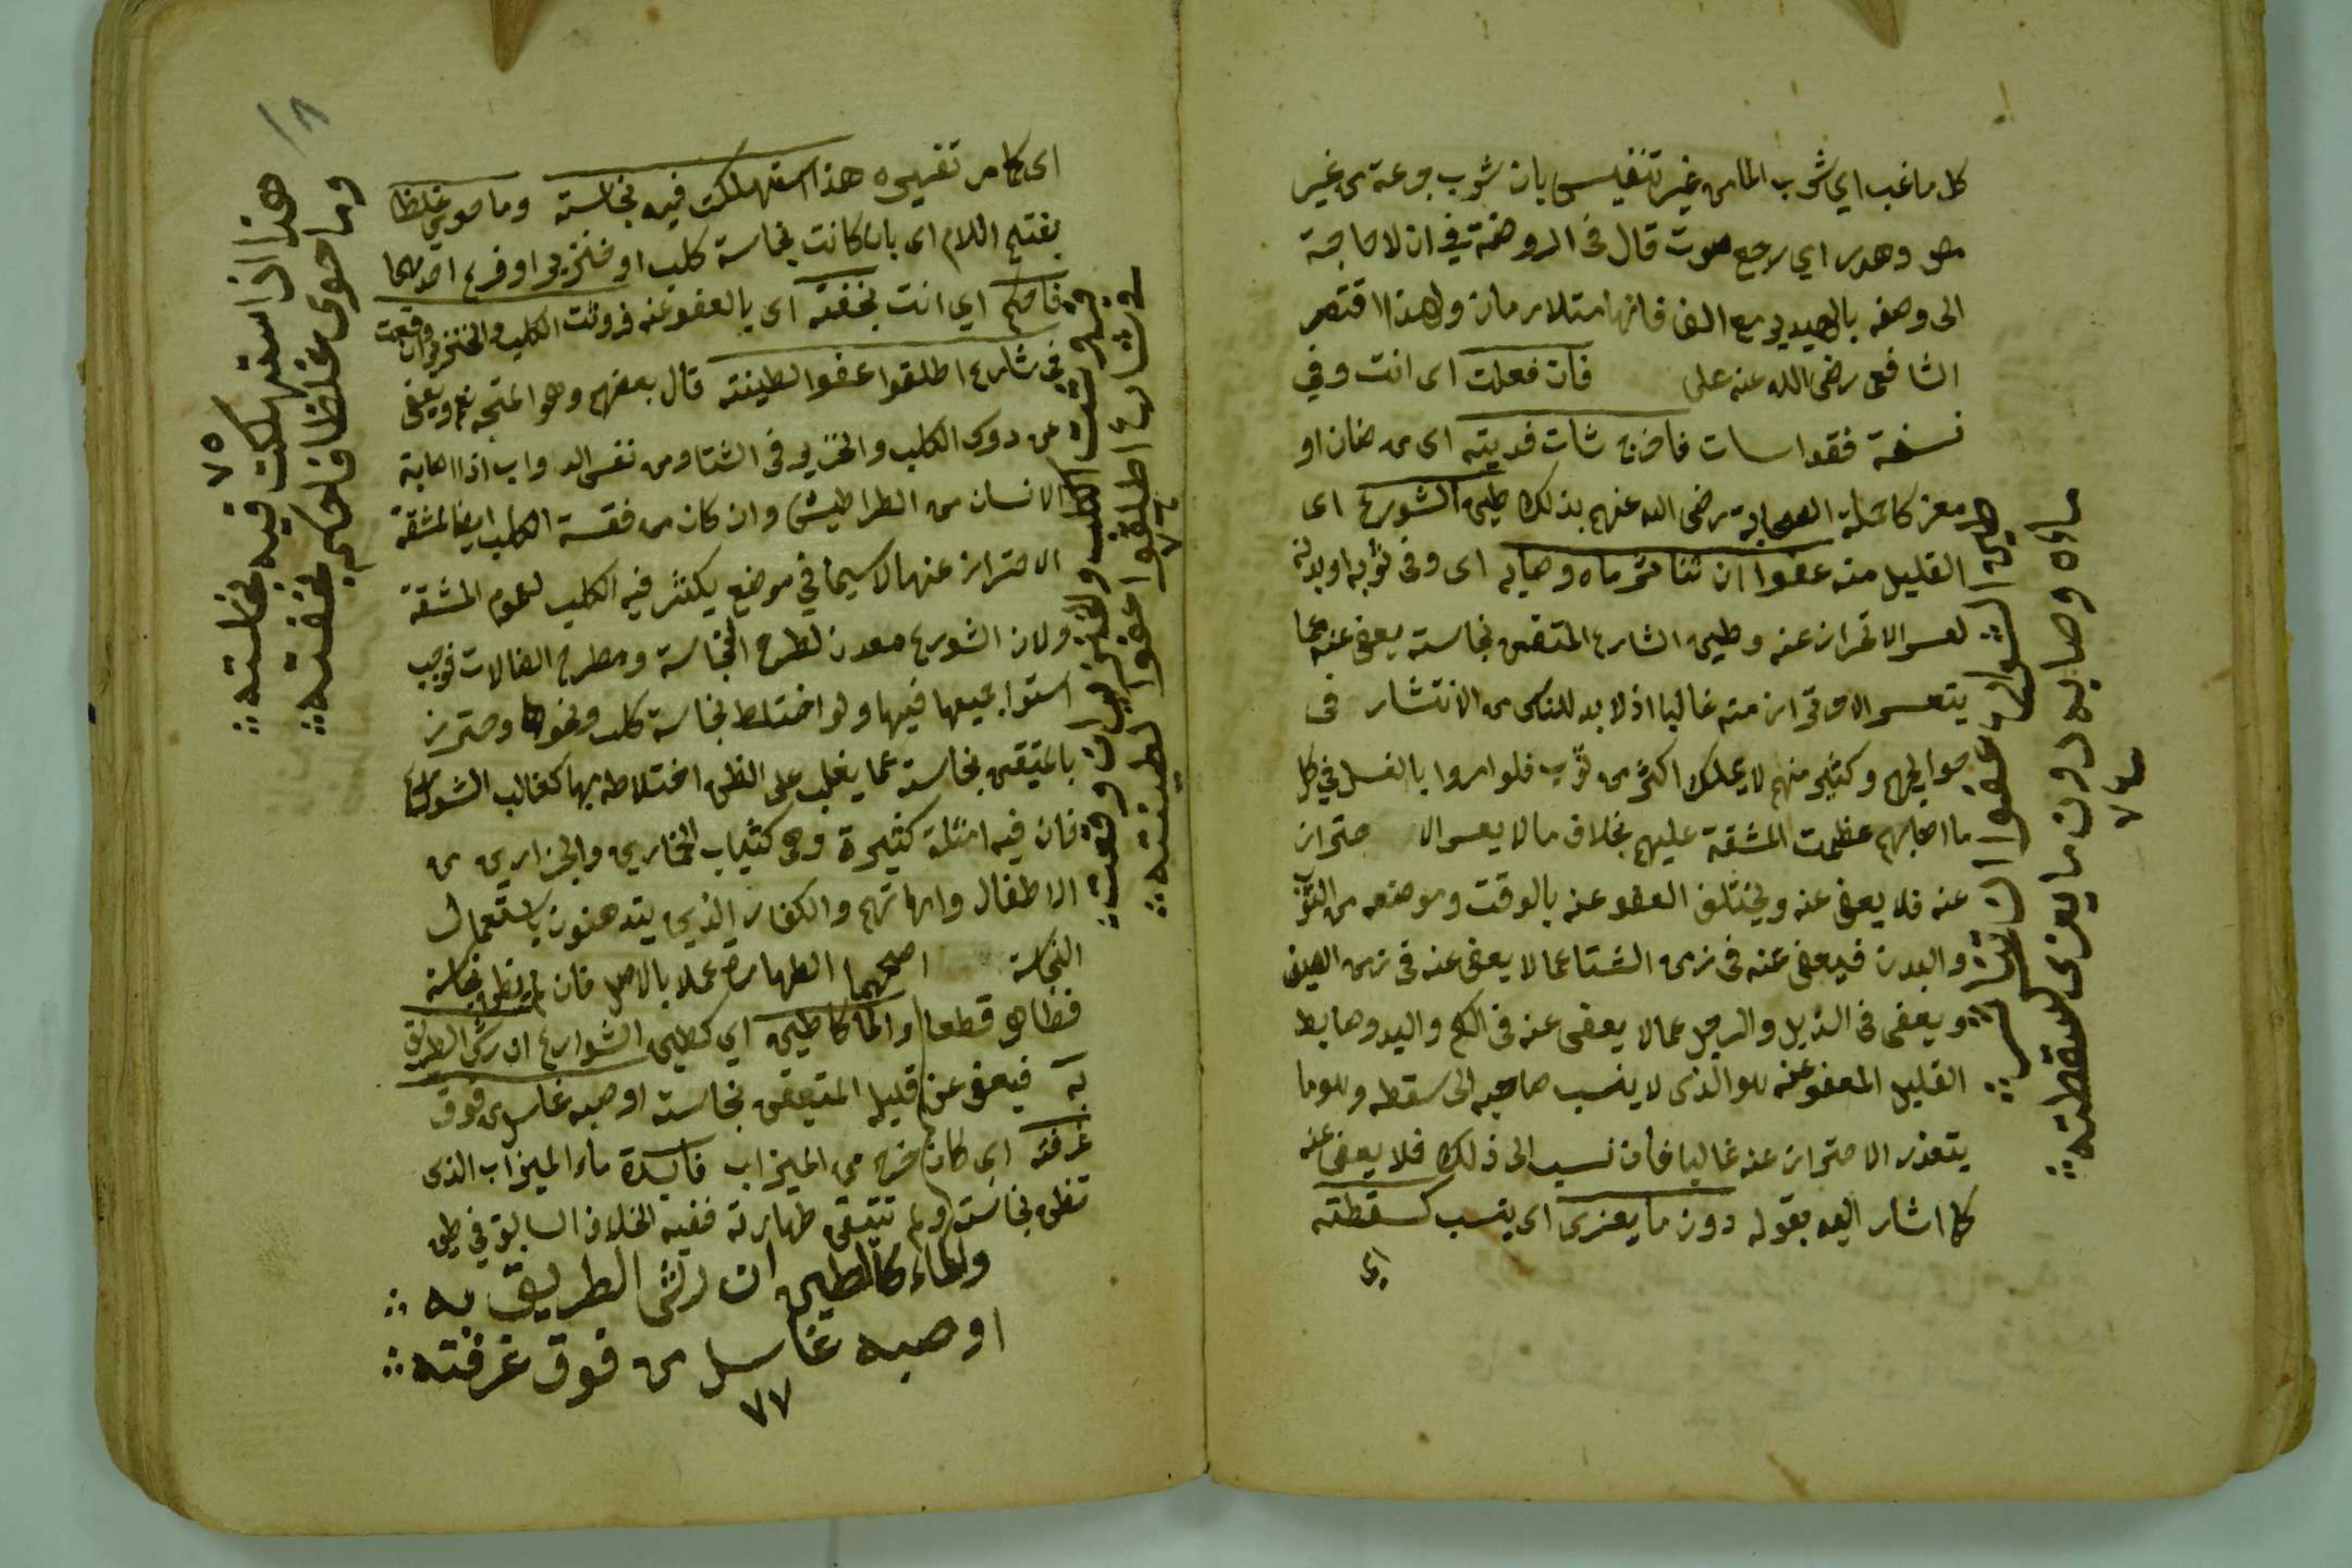 كل ما غب اي شرب الما من غير تنفيس بان شرب جرعة من غير
مص وهدر اي رجع صوت قال في الروضة في ان لا حاجة
الى وصفه بالهدير مع الف فانهما متلازمان ولهذا اقتصر
الشافعي رضى الله عنه على فان فعلت اى انت وفي
نسخة فقد اسات فاخرج شات فديته اى من ضان او
معز كما الصحابة رضى الله عنهم بذلك طين الشورع اى
القليل منه عفوا ان تناثر ماه وصابه اى وفى ثوبه او بدنه
لعسر الاحتراز عنه وطين الشارع المتقن نجاسته يعفى عنه عما
يتعسر الاحتراز منه غالبا اذ لا بد للناس من الانتشار فى
حوايجهم وكثير منهم لا يملك اكثر من ثوب فلو امروا بالغسل في كل
ما اصابهم عظمت المشقة عليهم بخلاف ما لا يعسر الا حتراز
عنه فلا يعفى عنه ويختلف العفو عنه بالوقت وموضعه من الثوب
والبدن فيعفى عنه فى زمن الشتا عما لا يعفى عنه فى زمن الصيف
ويعفى فى الذيل والرجل عما لا يعفى عنه فى الكم واليد وضابط
القليل المعفو عنه هو الذى لا ينسب صاحبه الى سقطه وهو ما
يتعذر الاحتراز عنه غالبا فان نسب الى ذلك فلا يعفى عنه
كما اشار اليه بقوله دون ما يعزى اى ينسب كسقطته
اى
طين الشوارع عفوا ان تناثر
ماه وصابه دون ما يعزى لسقطته
٧٤
اى كا من تغييره هذا استهلكت فيه نجاسته وما حوى غلظا
بفتح اللام اى بان كانت نجاسة كلب او خنزير او فرع احدهما
فاحكم اي انت بخفته اى بالعفو عنه فروثت الكلب والخنزير ان وقعت
في شارع اطلقوا عفوا لطينته قال بعضهم وهو المتجه نعم ويعفى
عن دوى الكلب والخنزير فى الشتا ومن نفس الدواب اذا اصابة
الانسان من الطراطيش وان كان من فقسة الكلب ايضا لمشقة
الاحتراز عنها لا سيما في موضع يكثر فيه الكلب لعموم المشقة
ولان الشورع معدن لطرح النجاسة ومطرح الفالات فوجب
استوا جميعها فيها ولو اختلط نجاسة كلب ونحوها وحترز
بالمتيقن نجاسته عما يغلب على الظن اختلاطه بها كغالب الشوارع
فان فيه امثلة كثيرة وهى كثياب الخمارين والجزارين من
الاطفال وامهاتهم والكفار الذين يتدهنون باستعمال
النجاسة اصحهما الطهارة عملا بالاصل فان لم يظن نجاسة
فطاهر قطعا والماكالطين اي كطين الشوارع ان رش الطريق
به فيعفى عن قليل المتيقن نجاسته او صبه غاسل من فوق
غرفته اى كان خرج من الميزاب فايدة ماء الميزاب الذى
تظن نجاسته ولم تتيقن طهارته ففيه الخلاف السابق في طين
هذا اذا استهلكت فيه نجاسته
وما حوى غلظا فاحكم بخفته
٧٥
فروثت الكلب والخنزير ان وقعت
في شارع اطلقوا عفوا لطينته
٧٦
والماء كالطين ان رش الطريق به
او صبه غاسل من فوق غرفته
٧٧